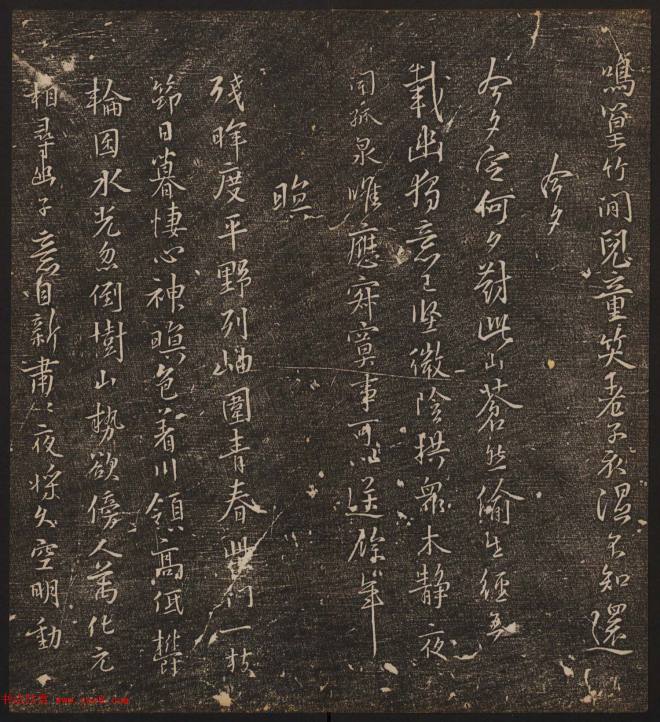 鳴篁竹間兒童笑老子衣濕不知還
今夕
今夕定何夕對此山蒼然偷生經五
載幽獨意已堅微陰拱衆木靜夜
聞孤泉唯應寂寞事可以送餘年
暝
殘暉度平野列岫圍青春柴門一枝
筇日暮棲心神暝色著川領高低鬱
輪囷水光忽倒樹山勢欲傍人萬化元
相尋幽子意自新肅〻夜將久空明動
书法欣赏 www.yac8.com